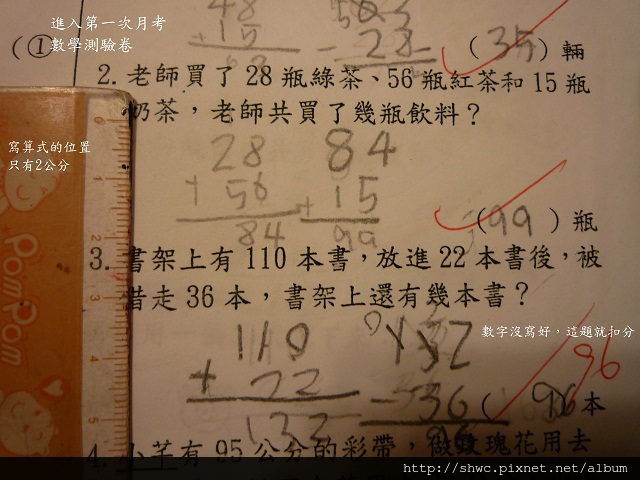 進入第一次月考
數學測驗卷
48
+15
- 28
(①
(35)輛
2. 老師買了 28 瓶綠茶、56 瓶紅茶和 15 瓶
奶茶，老師共買了幾瓶飲料？
寫算式的位置
只有2公分
28 84
+56 +15
84 99
(99)瓶
3. 書架上有 110 本書，放進 22 本書後，被
借走 36 本，書架上還有幾本書？
數字沒寫好，這題就扣分
110
+ 22 - 36
132 96
96
本
4. 小芊有 95 公分的彩帶，做玫瑰花用去
2
3
4
5
PomPom
http://shwc.pixnet.net/album